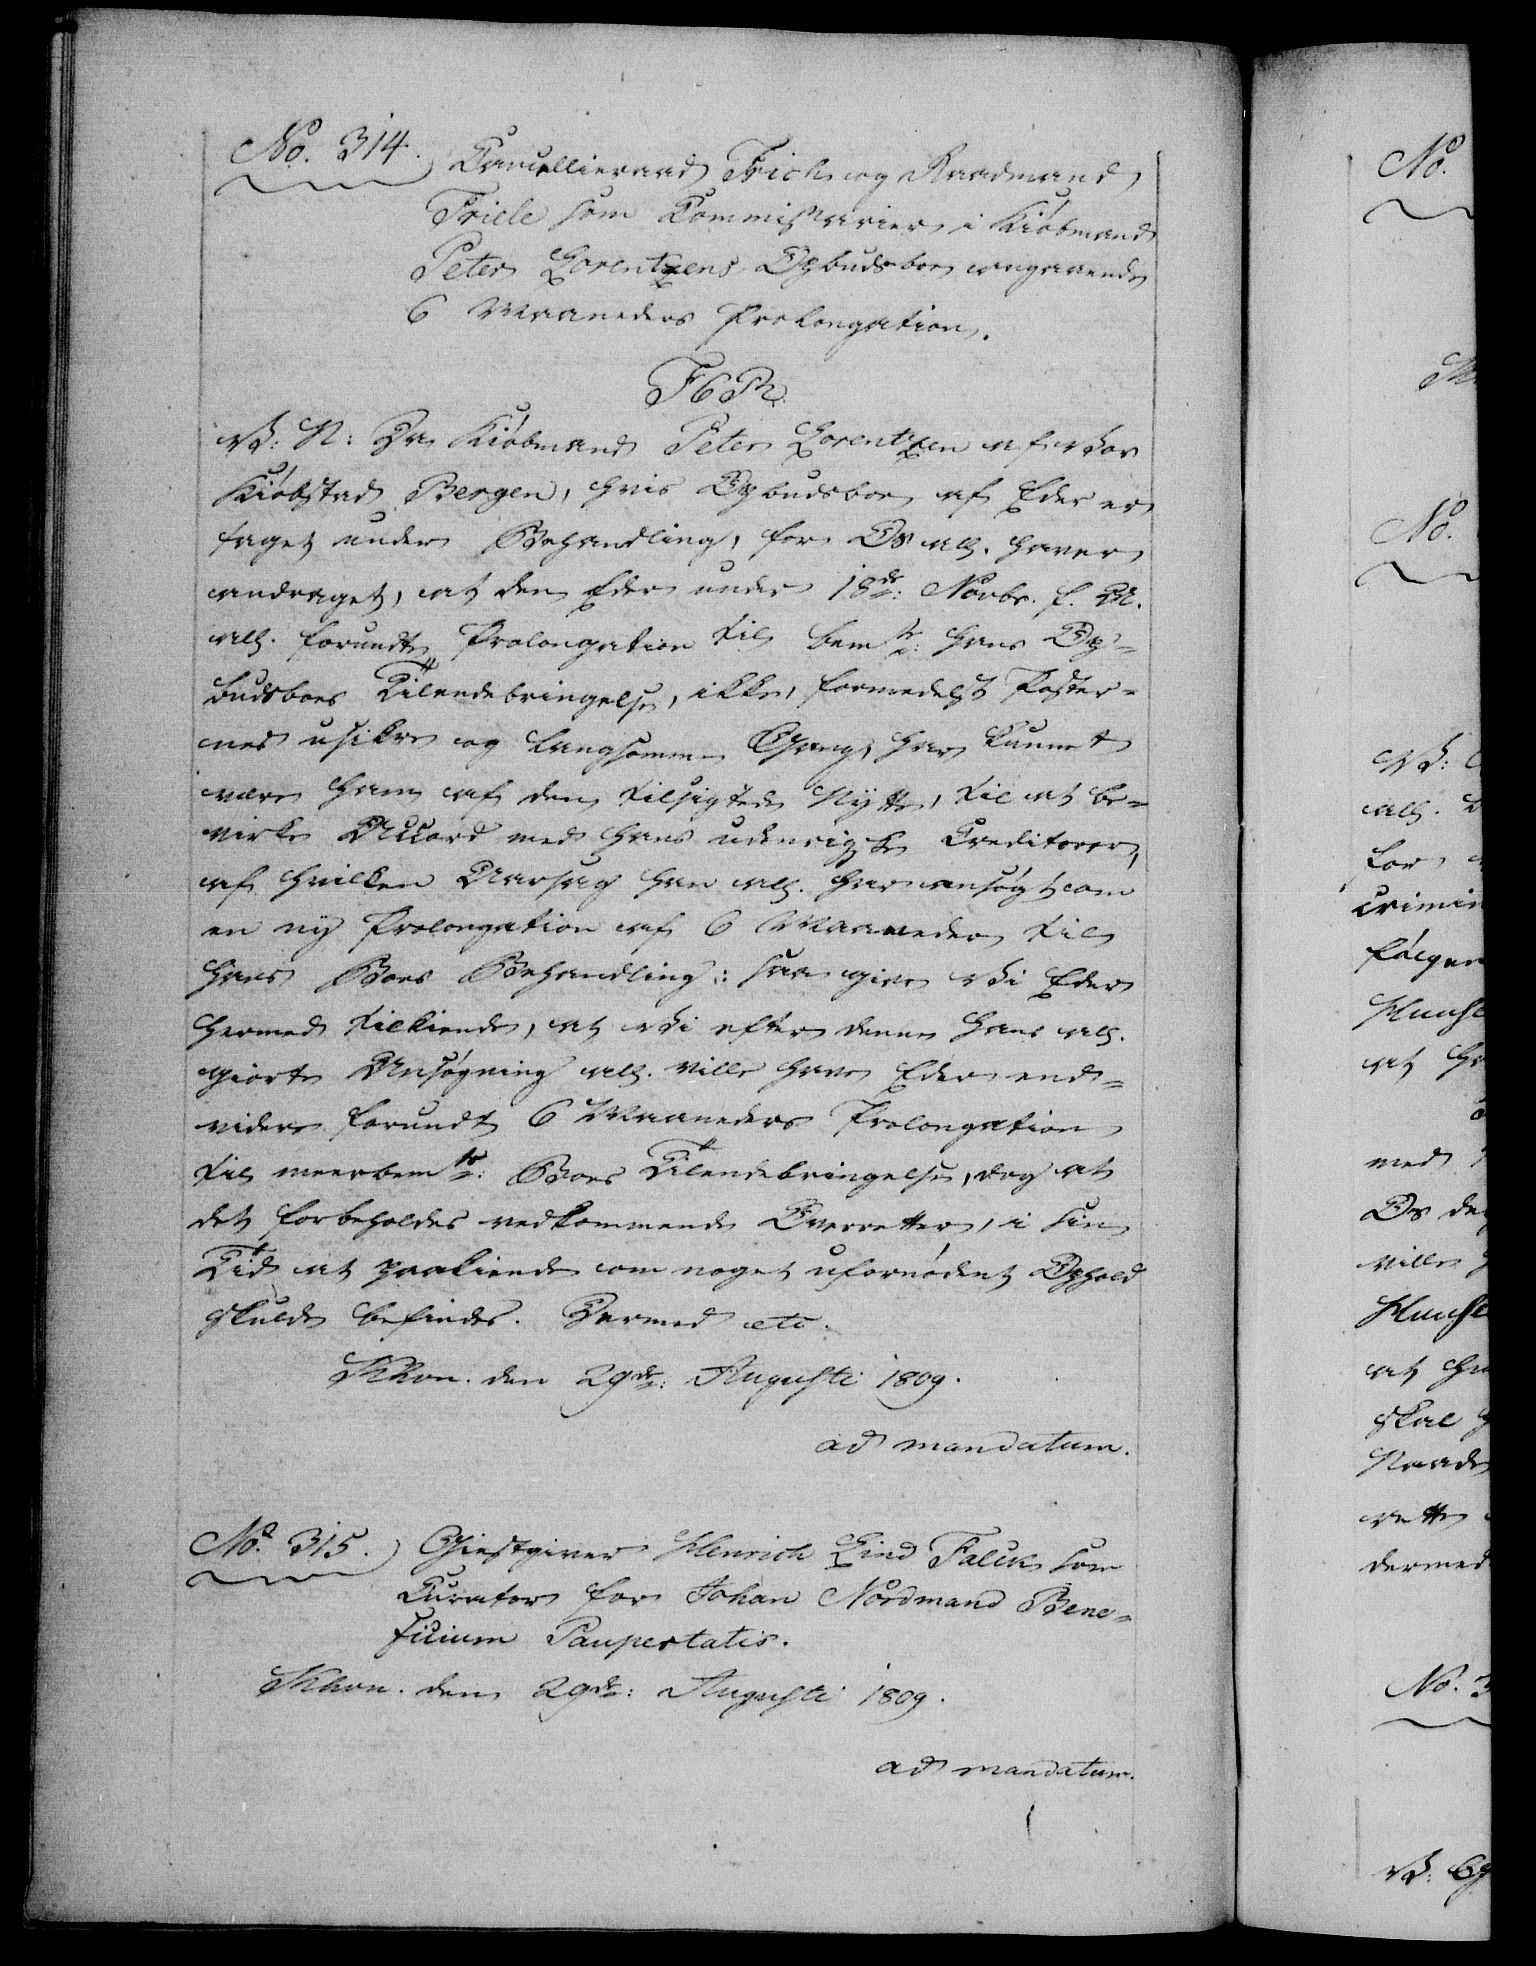 No. 314. Cancellieraad Frich og Raadmand
Friele som Commissarier i Kiøbmand
Peter Lorentzens Opbudsboe angaaende
6 Maaneders Prolongation.
F6R.
V.G: N: Da Kiøbmand Peter Lorentzen af Vor
Kiøbstad Bergen, hvis Opbudsboe af Eder er
taget under Behandling, for Os all. haver
andraget, at den Eder under 18de: Novbr. f. A.
all. forundte Prolongation til bemte: hans Op-
budsboes Tilendebringelse, ikke, formedelst Poster-
nes usikre og langsomme Gang, har kunnet
være ham af den tilsigtede Nytte, til at be-
virke Accord med hans udenrigske Creditorer,
af hvilken Aarsag han all. har ansøgt om
en ny Prolongation af 6 Maaneder til
hans Boes Behandling: saa give Vi Eder
hermed tilkiende, at Vi efter denne hans all.
giorte Ansøgning all. ville have Eder end-
videre forundt 6 Maaneders Prolongation
til meerbemte: Boes Tilendebringelse, dog at
det forbeholdes vedkommende Overretter, i sin
Tid at paakiende om noget ufornødent Ophold
skulde befindes. Dermed etc.
Khvn. den 29de: Augusti 1809.
ad mandatum.
No. 315. Giestgiver Henrich Lind Falck som
Curator for Johan Nordmand Bene-
ficium Paupertatis.
Khvn. den 29de: Augusti 1809.
ad mandatum.
No.
No.
for
crimin
følger
at
med
Os de
ville
at
skal
rette
dermed
No. 3